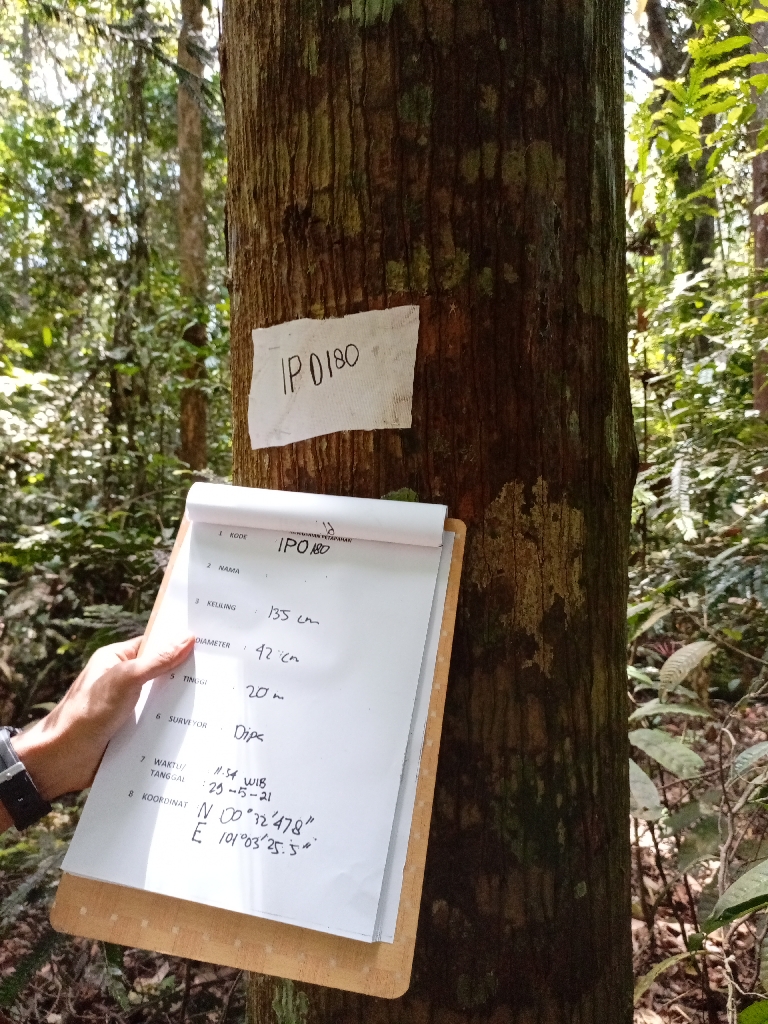 IPO180
1 KODE IPO180
2 NAMA :
3 KELILING : 135 cm
DIAMETER : 42 cm
5 TINGGI : 20 m
6 SURVEYOR : Dipa
7 WAKTU/ : 11.54 WIB
TANGGAL : 29-5-21
8 KOORDINAT N 00°32'478"
E 101°03'25.5"